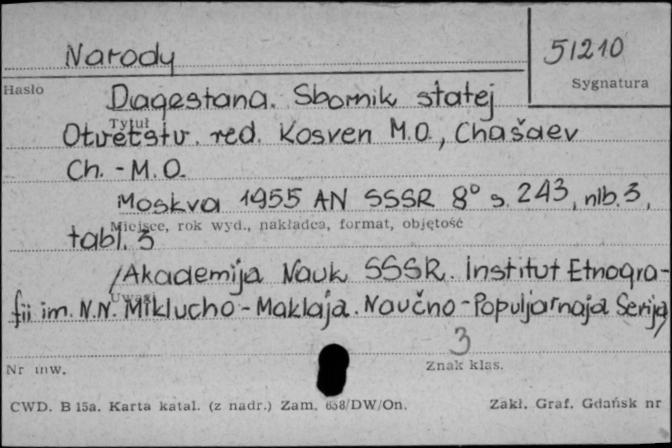 Narody
51210
Hasło
Sygnatura
Dagestana. Sbornik statej
Tytuł
Otvetstv. red. Kosven M.O., Chašaev
Ch. - M. O.
Moskva 1955 AN SSSR 8° s. 243, nlb. 3,
Miejsce, rok wyd., nakładca, format, objętość
tabl. 3
/Akademija Nauk SSSR. Institut Etnogra-
Uwagi
fii im. N.N. Miklucho - Maklaja. Naučno - Populjarnaja Serija/
3
Nr inw.
Znak klas.
CWD. B 15a. Karta katal. (z nadr.) Zam. 638/DW/On.
Zakł. Graf. Gdańsk nr